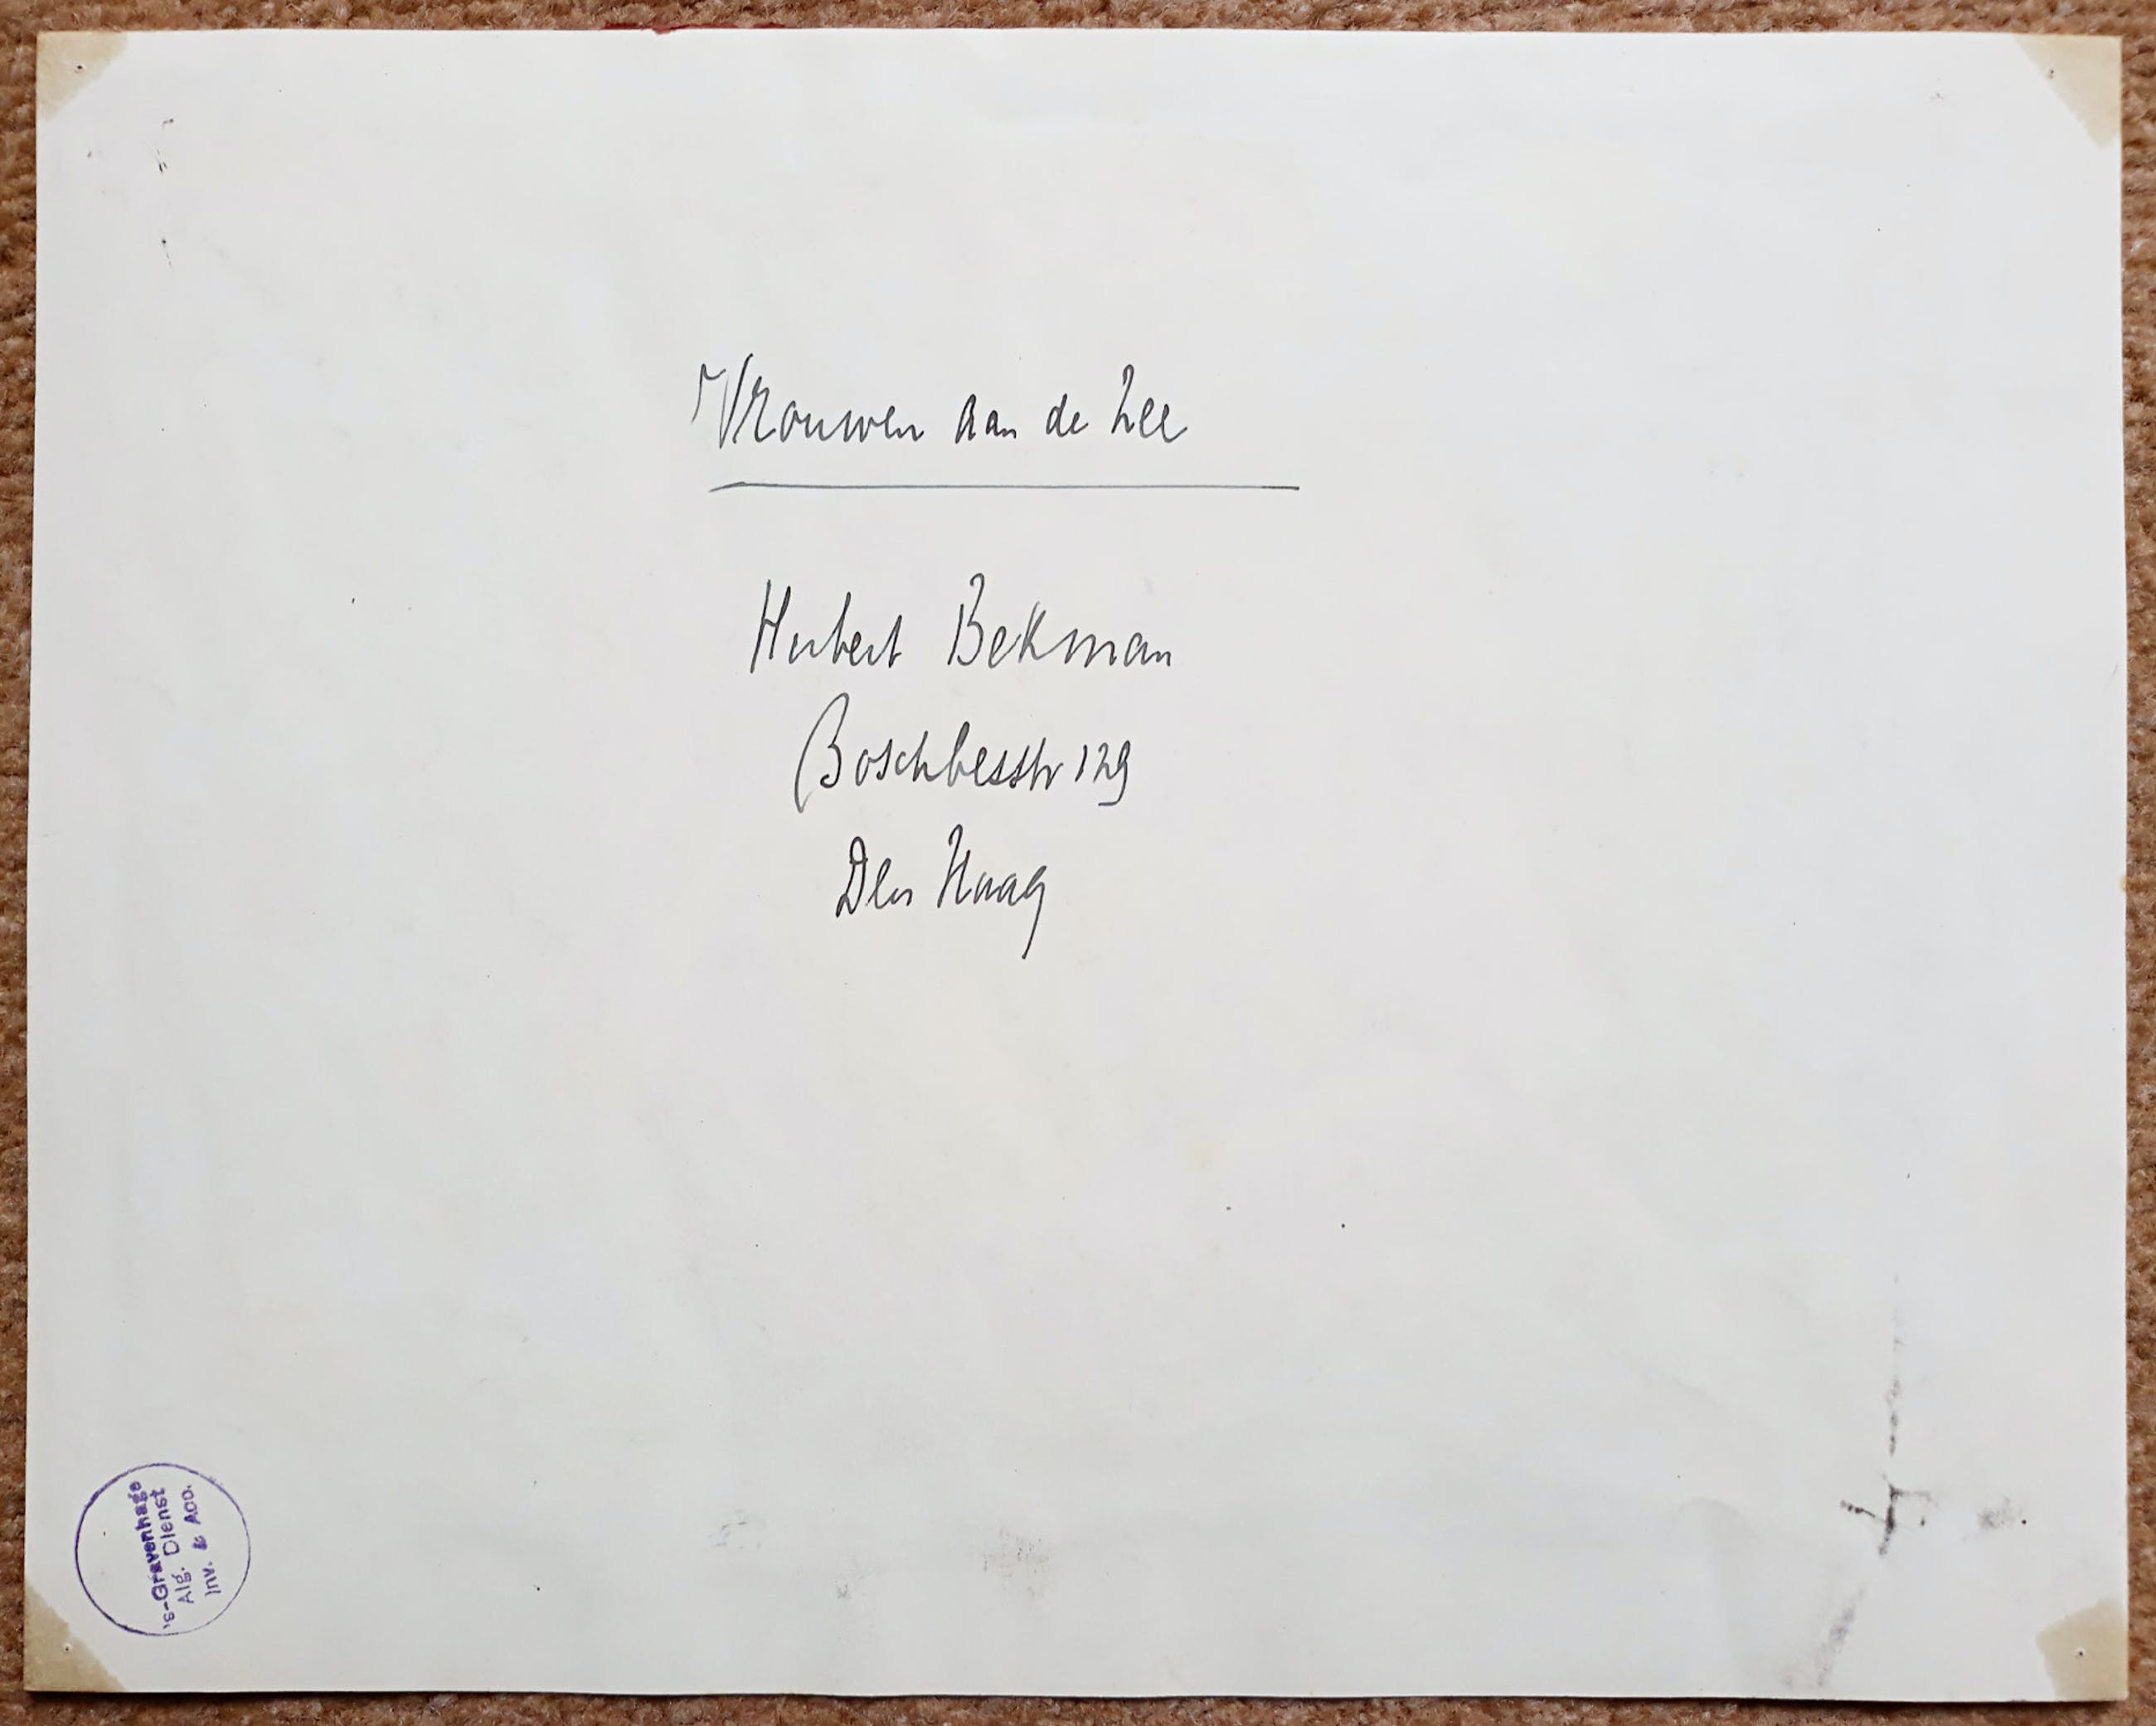 Vrouwen aan de Zee
Hubert Bekman
Boschbesstr 129
Den Haag
's-Gravenhage
Alg. Dienst
Inv. & Acc.